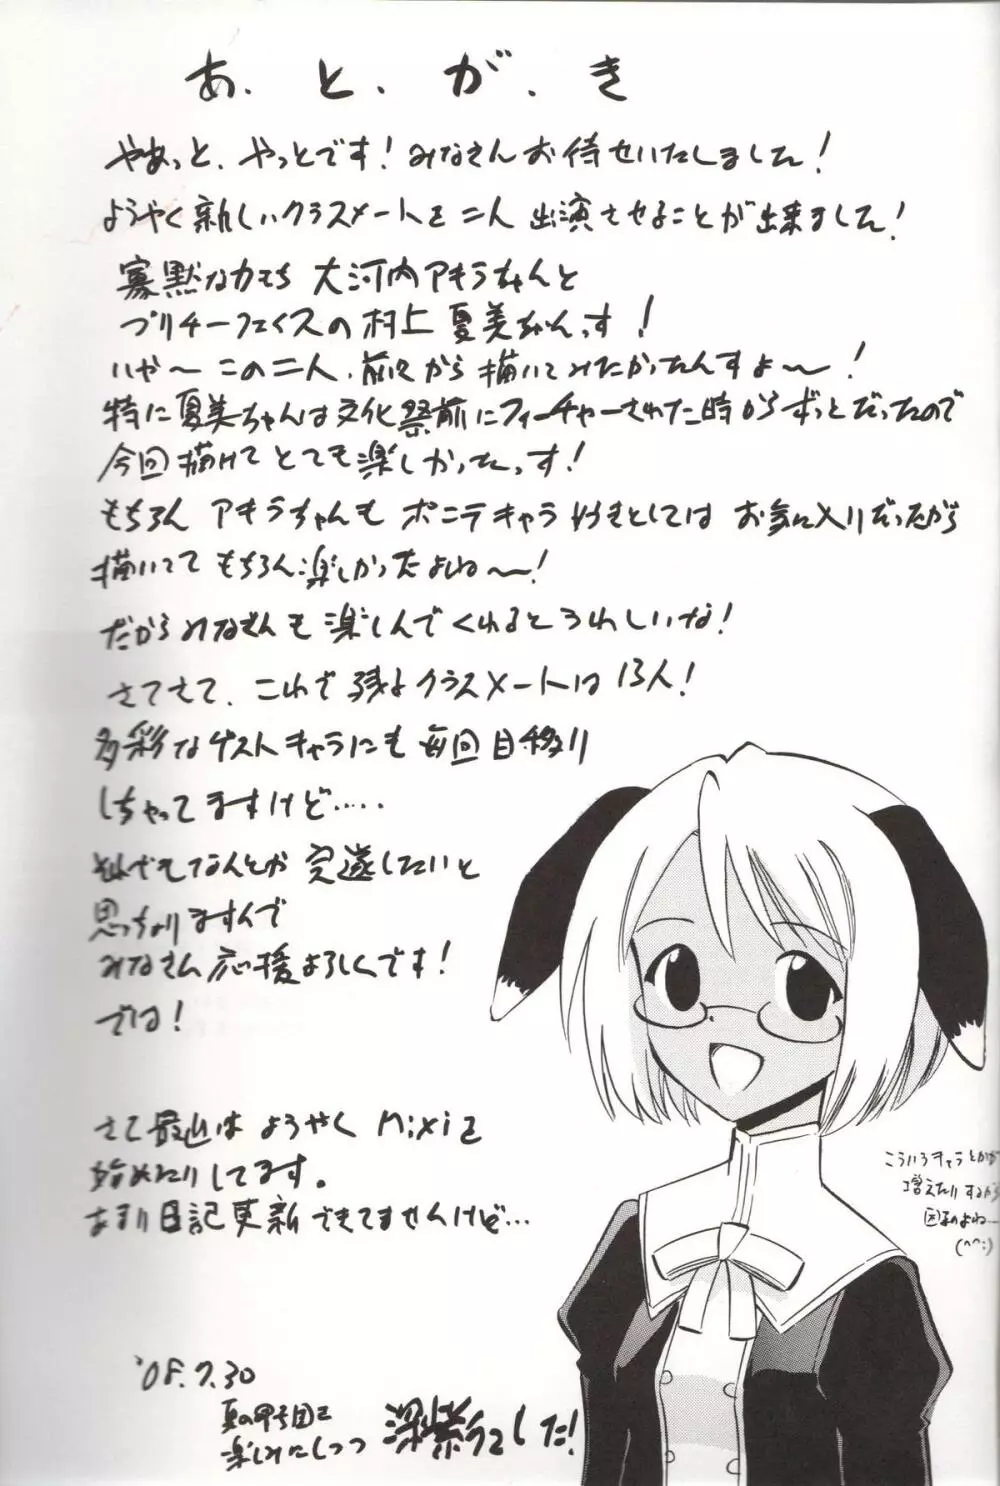 あ、と、が、き
やあっと、やっとです!みなさんお待せいたしました!
ようやく新しいクラスメートを二人出演させることが出来ました!
寡黙な力もち 大河内アキラちゃんと
プリチーフェイスの村上夏美ちゃんっす!
いや〜この二人、前々から描いてみたかったんすよ〜!
特に夏美ちゃんは文化祭前にフィーチャーされた時からずっとだったので
今回描けてとても楽しかったっす!
もちろん アキラちゃんも ポニテキャラ好きとしては お気に入りだったから
描いてて もちろん楽しかったよね〜!
だからみなさんも楽しんでくれるとうれしいな!
さてさて、これで残よクラスメートは13人!
多彩なゲストキャラにも毎回目移り
しちゃってますけど.....
それでもなんとか完遂したいと
思っちょりますんで
みなさん応援よろしくです!
では!
さて最近はようやくmixiを
始めたりしてます。
あまり日記更新できてませんけど...
こういうキャラとかが
増えたりするから
困るのよね...
(^^;)
'08.7.30
夏の甲子園を
楽しみにしつつ 深紫でした!